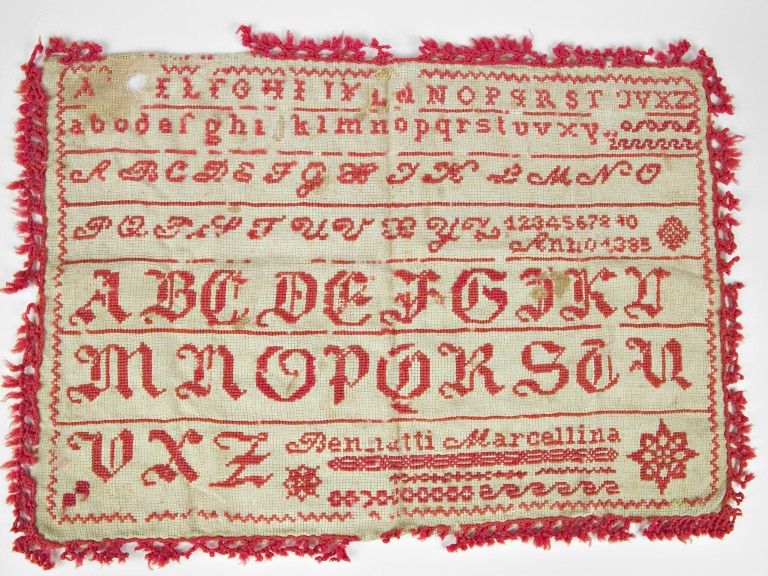 A F G H I N O P Q R S T U V X Z
a b c d e f g h i k l m n o p q r s t u v x y
A B C D E F G H I K L M N O
P Q R S T U V X Y Z 12345678 90
Anno 1885
A B C D E F G I K L
M N O P Q R S T U
V X Z Bennetti Marcellina